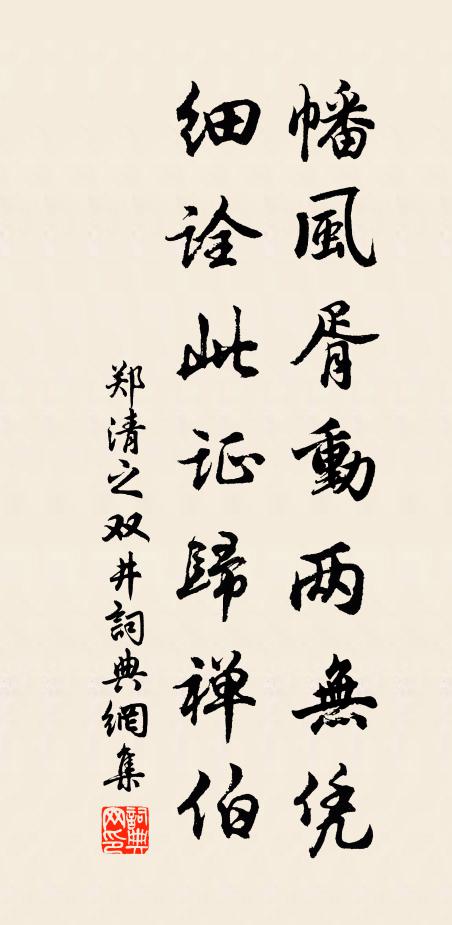 幡風胥動两無凭
细诠此证歸禅伯
郑清之双井詞典網集
詞典网印